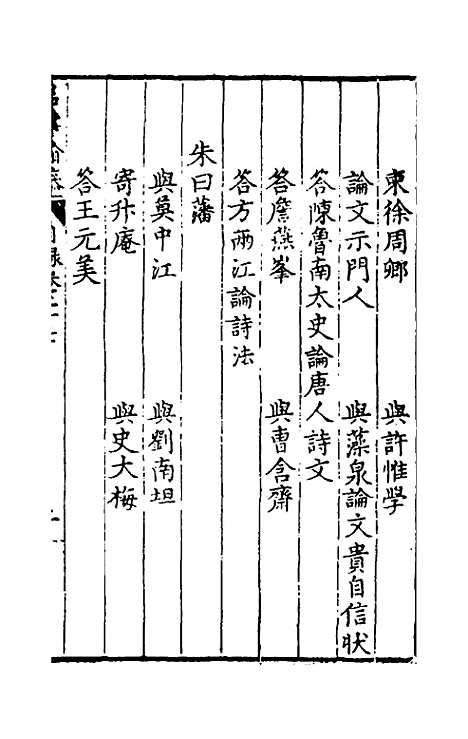 柬徐周卿　與許惟學
論文示門人　與藻泉論文貴自信狀
答陳魯南太史論唐人詩文
答詹燕峯　與曹含齋
答方兩江論詩法
朱曰藩
與莫中江　與劉南坦
寄升庵　與史大梅
答王元美